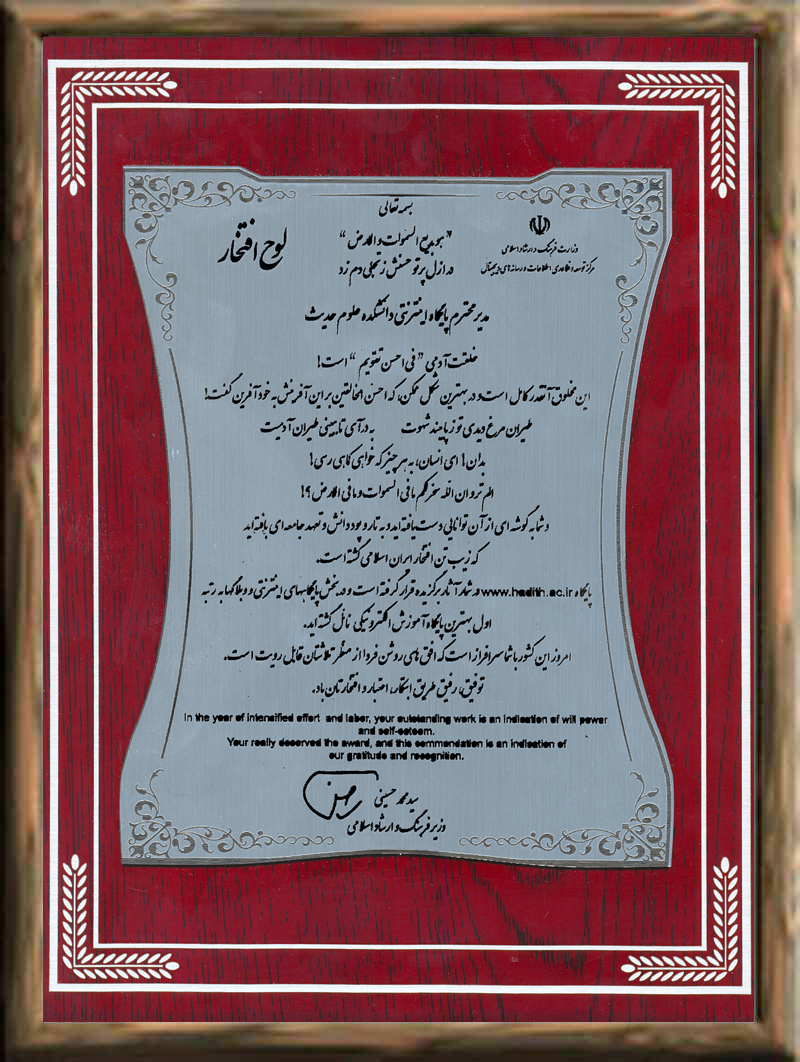 بسمه تعالی
وزارت فرهنگ و ارشاد اسلامی
مرکز توسعه و فناوری اطلاعات و رسانه های دیجیتال
"هو بدیع السموات و الارض"
در ازل پرتو حسنش ز تجلی دم زد
لوح افتخار
مدیر محترم پایگاه اینترنتی دانشکده علوم حدیث
خلقت آدمی "فی احسن تقویم" است!
این مخلوق آنقدر کامل است و در بهترین شکل ممکن، که احسن الخالقین بر این آفرینش به خود آفرین گفت!
طیران مرغ دیدی تو ز پایبند شهوت به در آی تا ببینی طیران آدمیت
بدان! ای انسان، به هر چیز که خواهی گاهی رسی!
الم تر و ان الله سخر لکم ما فی السموات و ما فی الارض؟!
و شما به گوشه ای از آن توانایی دست یافته اید و به تار و پود دانش و تعهد جامعه ای بافته اید
که زیب تن افتخار ایران اسلامی گشته است.
پایگاه www.hadith.ac.ir در شمار آثار برگزیده قرار گرفته است و در بخش پایگاههای اینترنتی و وبلاگها به رتبه
اول بهترین پایگاه آموزش الکترونیکی نائل گشته اید.
امروز این کشور با شما سرافراز است که افق های روشن فردا از منظر تلاشتان قابل رویت است.
توفیق، رفیق طریق ابتکار، اعتبار و افتخارتان باد.
In the year of intensified effort and labor, your outstanding work is an indication of will power
and self-esteem.
Your really deserved the award, and this commendation is an indication of
our gratitude and recognition.
سید محمد حسینی
وزیر فرهنگ و ارشاد اسلامی